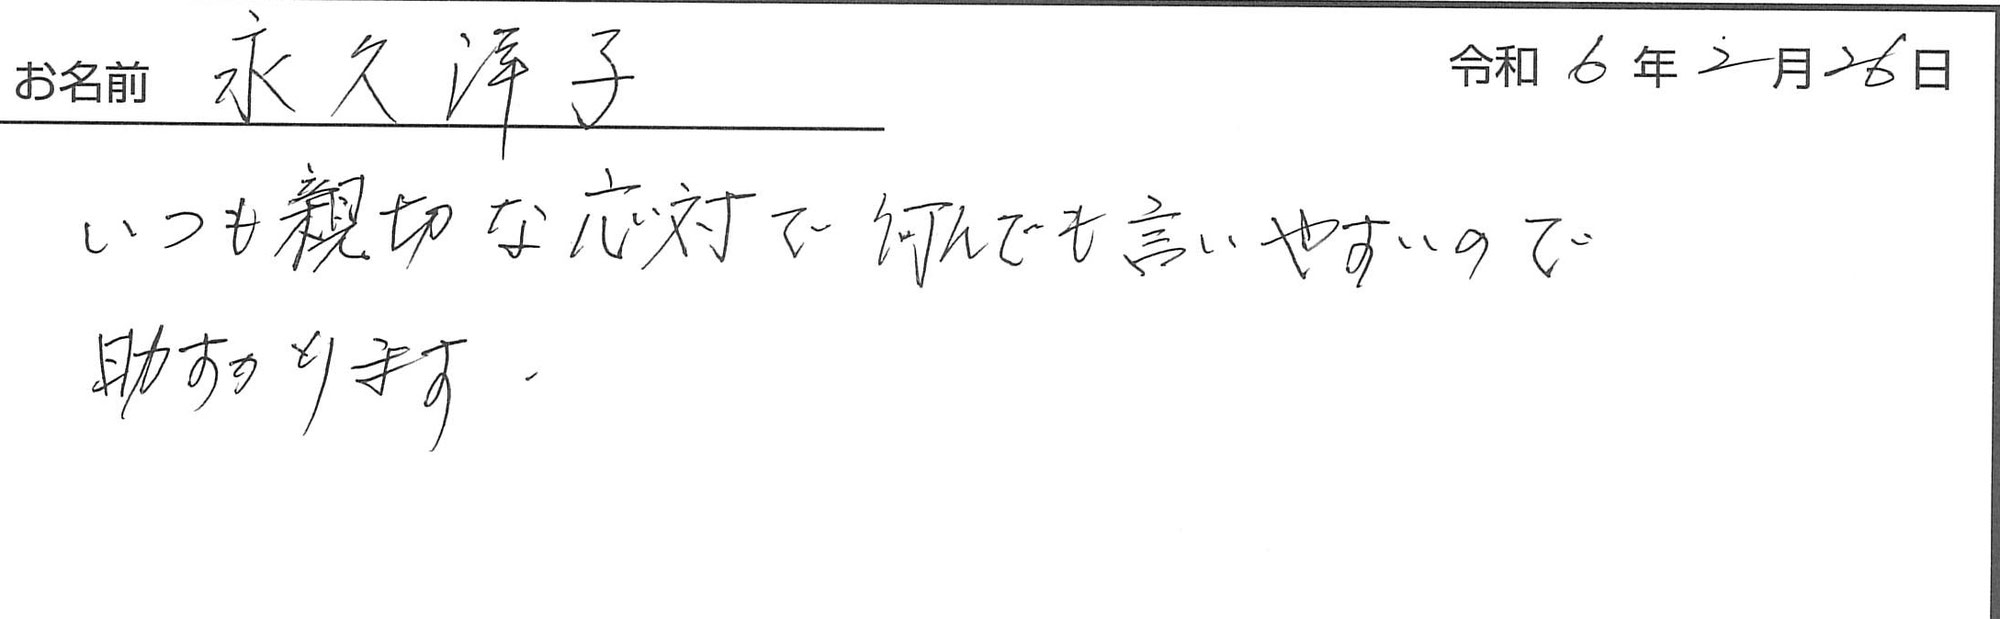 お名前 永久洋子 令和6年2月26日
いつも親切な応対で何んでも言いやすいので
助すかります.